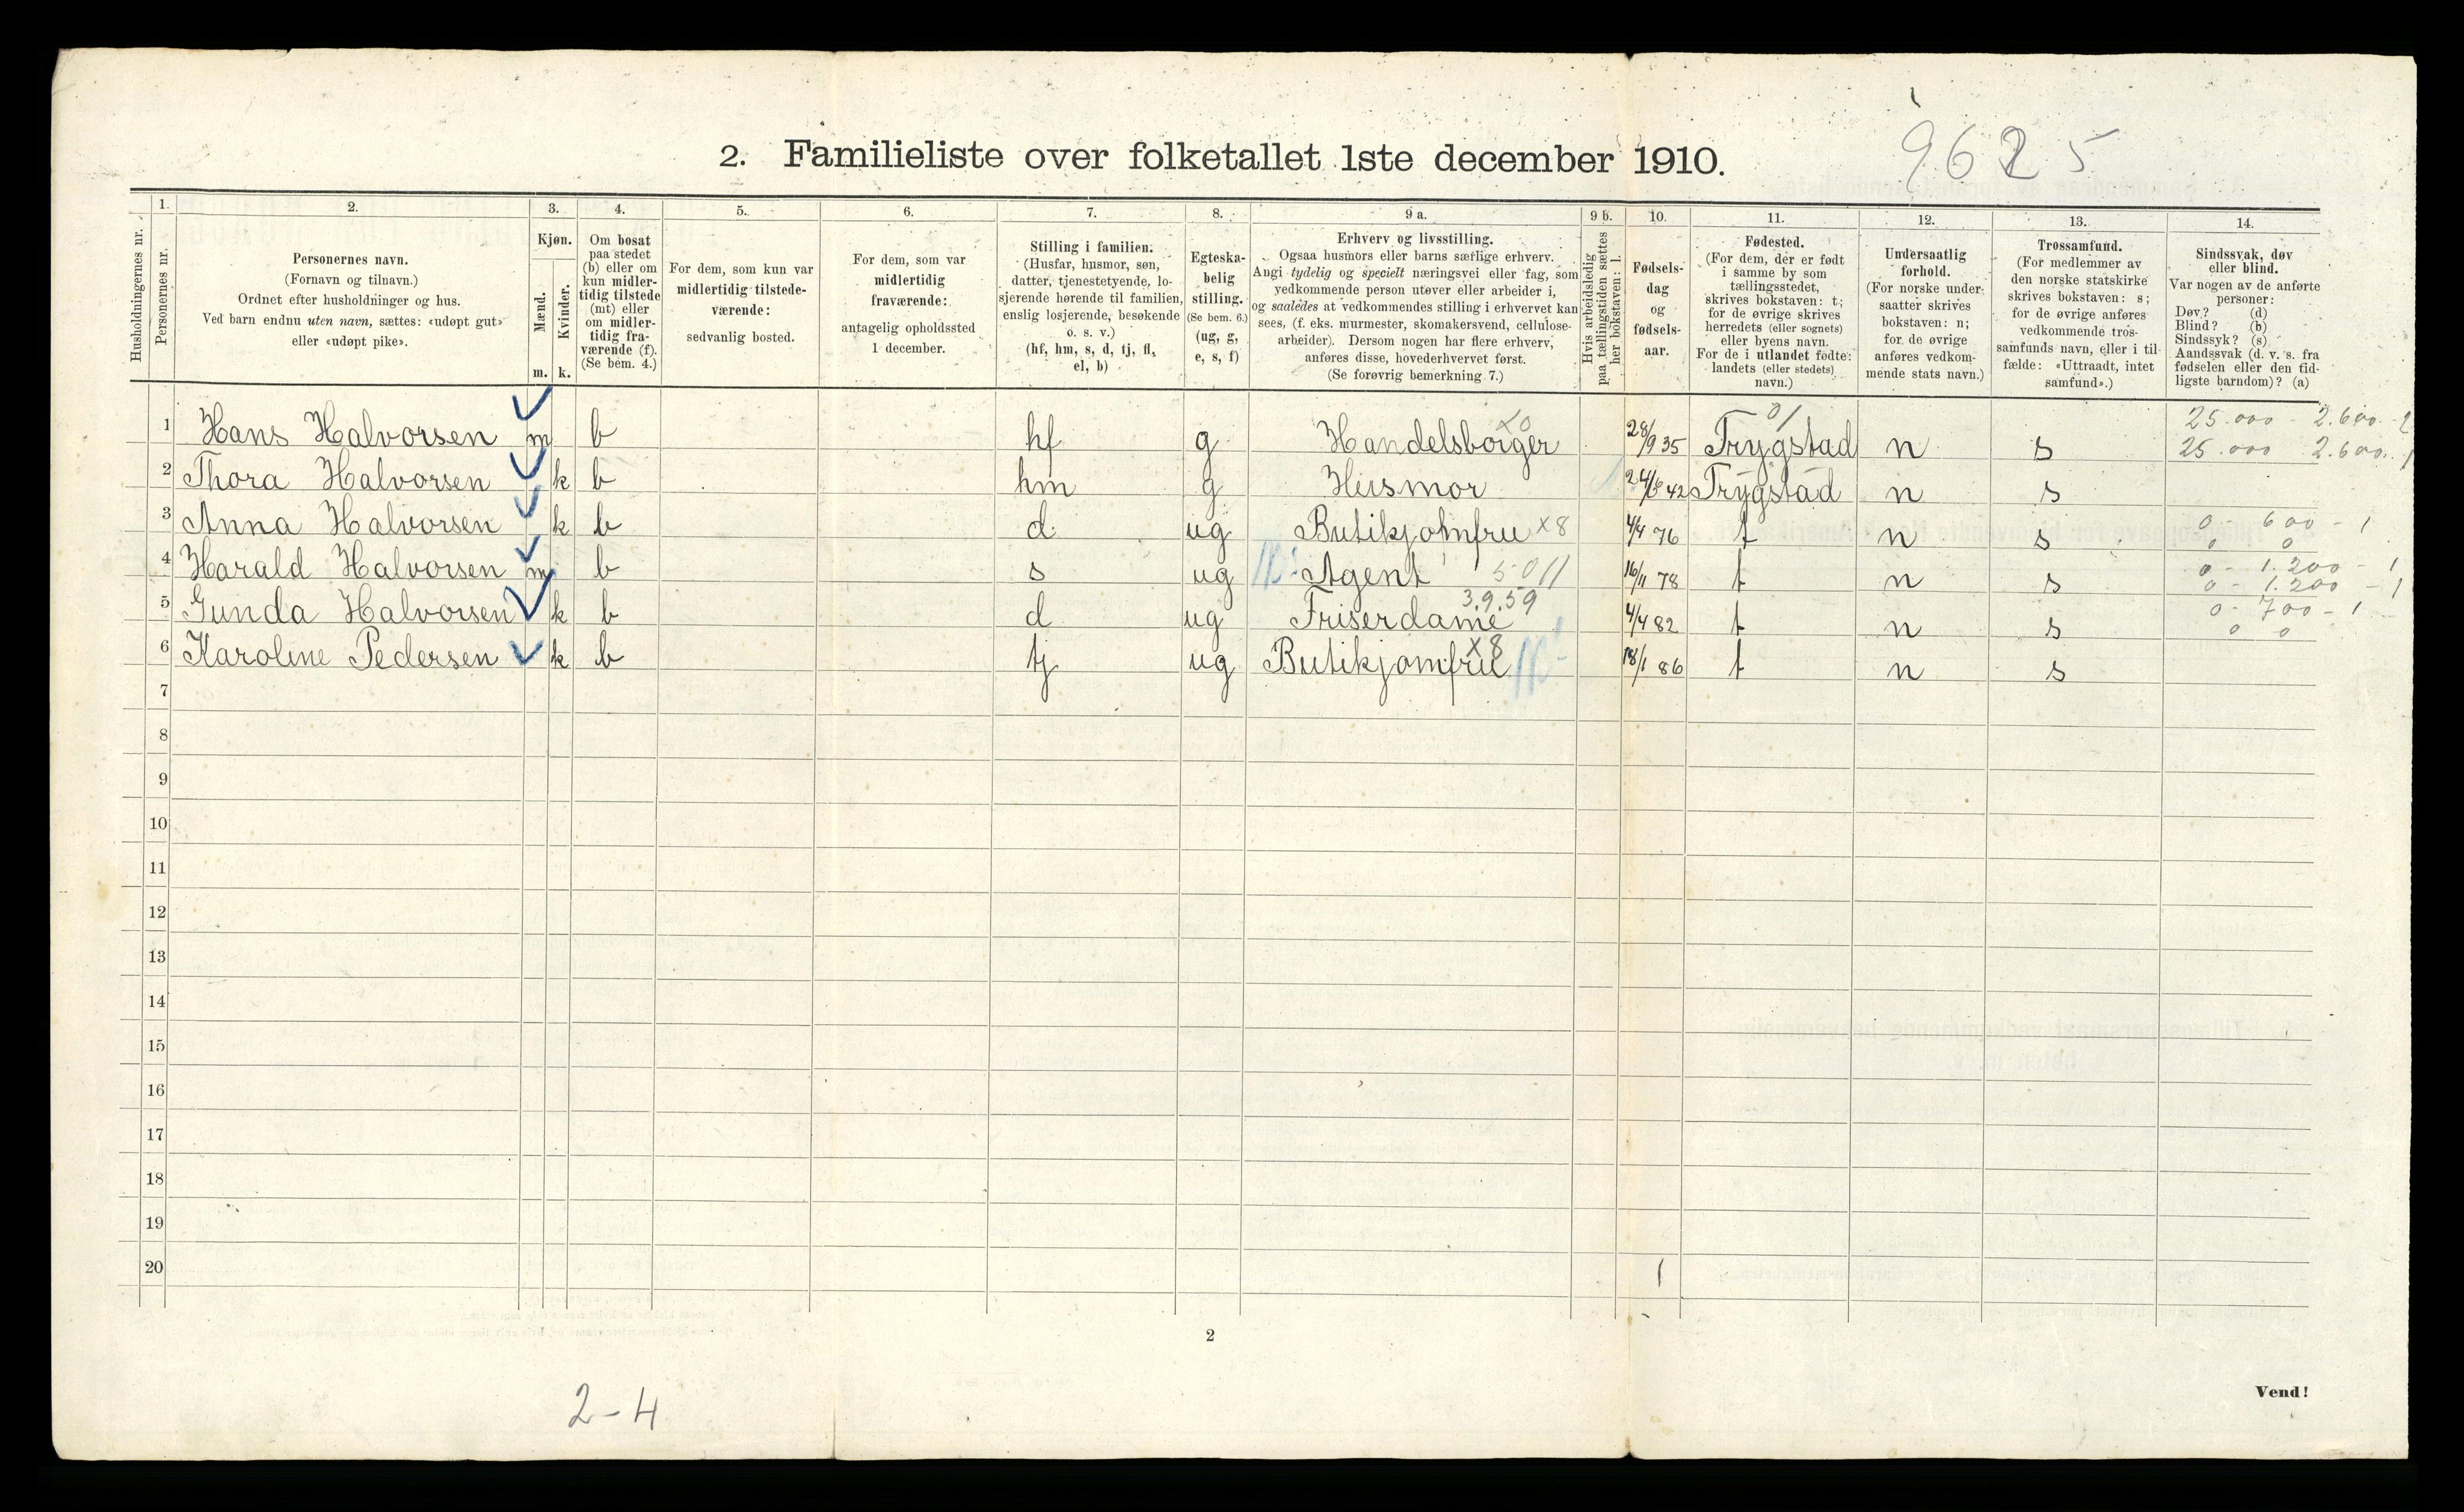 9625
2. Familieliste over folketallet 1ste december 1910.
Husholdningernes nr.
1. Personernes nr.
2. Personernes navn.
(Fornavn og tilnavn.)
Ordnet efter husholdninger og hus.
Ved barn endnu uten navn, sættes: «udøpt gut»
eller «udøpt pike».
3. Kjøn.
Mænd. m.
Kvinder. k.
4. Om bosat
paa stedet
(b) eller om
kun midler-
tidig tilstede
(mt) eller
om midler-
tidig fra-
værende (f).
(Se bem. 4.)
5. For dem, som kun var
midlertidig tilstede-
værende:
sedvanlig bosted.
6. For dem, som var
midlertidig
fraværende:
antagelig opholdssted
1 december.
7. Stilling i familien.
(Husfar, husmor, søn,
datter, tjenestetyende, lo-
sjerende hørende til familien,
enslig losjerende, besøkende
o. s. v.)
(hf, hm, s, d, tj, fl,
el, b)
8. Egteska-
belig
stilling.
(Se bem. 6.)
(ug, g,
e, s, f)
9 a. Erhverv og livsstilling.
Ogsaa husmors eller barns særlige erhverv.
Angi tydelig og specielt næringsvei eller fag, som
vedkommende person utøver eller arbeider i,
og saaledes at vedkommendes stilling i erhvervet kan
sees, (f. eks. murmester, skomakersvend, cellulose-
arbeider). Dersom nogen har flere erhverv,
anføres disse, hovederhvervet først.
(Se forøvrig bemerkning 7.)
9 b. Hvis arbeidsledig
paa tællingstiden sættes
her bokstaven: l.
10. Fødsels-
dag
og
fødsels-
aar.
11. Fødested.
(For dem, der er født
i samme by som
tællingsstedet,
skrives bokstaven: t;
for de øvrige skrives
herredets (eller sognets)
eller byens navn.
For de i utlandet fødte:
landets (eller stedets)
navn.)
12. Undersaatlig
forhold.
(For norske under-
saatter skrives
bokstaven: n;
for de øvrige
anføres vedkom-
mende stats navn.)
13. Trossamfund.
(For medlemmer av
den norske statskirke
skrives bokstaven: s;
for de øvrige anføres
vedkommende tros-
samfunds navn, eller i til-
fælde: «Uttraadt, intet
samfund».)
14. Sindssvak, døv
eller blind.
Var nogen av de anførte
personer:
Døv? (d)
Blind? (b)
Sindssyk? (s)
Aandssvak (d. v. s. fra
fødselen eller den tid-
ligste barndom)? (a)
1 Hans Halvorsen m b hf g Handelsborger x0 28/9 35 Trygstad 01 n s 25.000 - 2.600 - 2
25.000 2.600. 1
2 Thora Halvorsen k b hm g Husmor 24/6 42 Trygstad n s
3 Anna Halvorsen k b d ug Butikjomfru x8 4/4 76 t n s 0 600 - 1
0 0
4 Harald Halvorsen m b s ug Agent 5011 16/11 78 t n s 0 - 1.200 - 1
0 - 1.200 - 1
5 Gunda Halvorsen k b d ug Friserdame 3.9.59 4/4 82 t n s 0 - 700 - 1
0 0
6 Karoline Pedersen k b tj ug Butikjomfru x8 18/1 86 t n s
7
8
9
10
11
12
13
14
15
16
17
18
19
20
2
Vend!
2-4